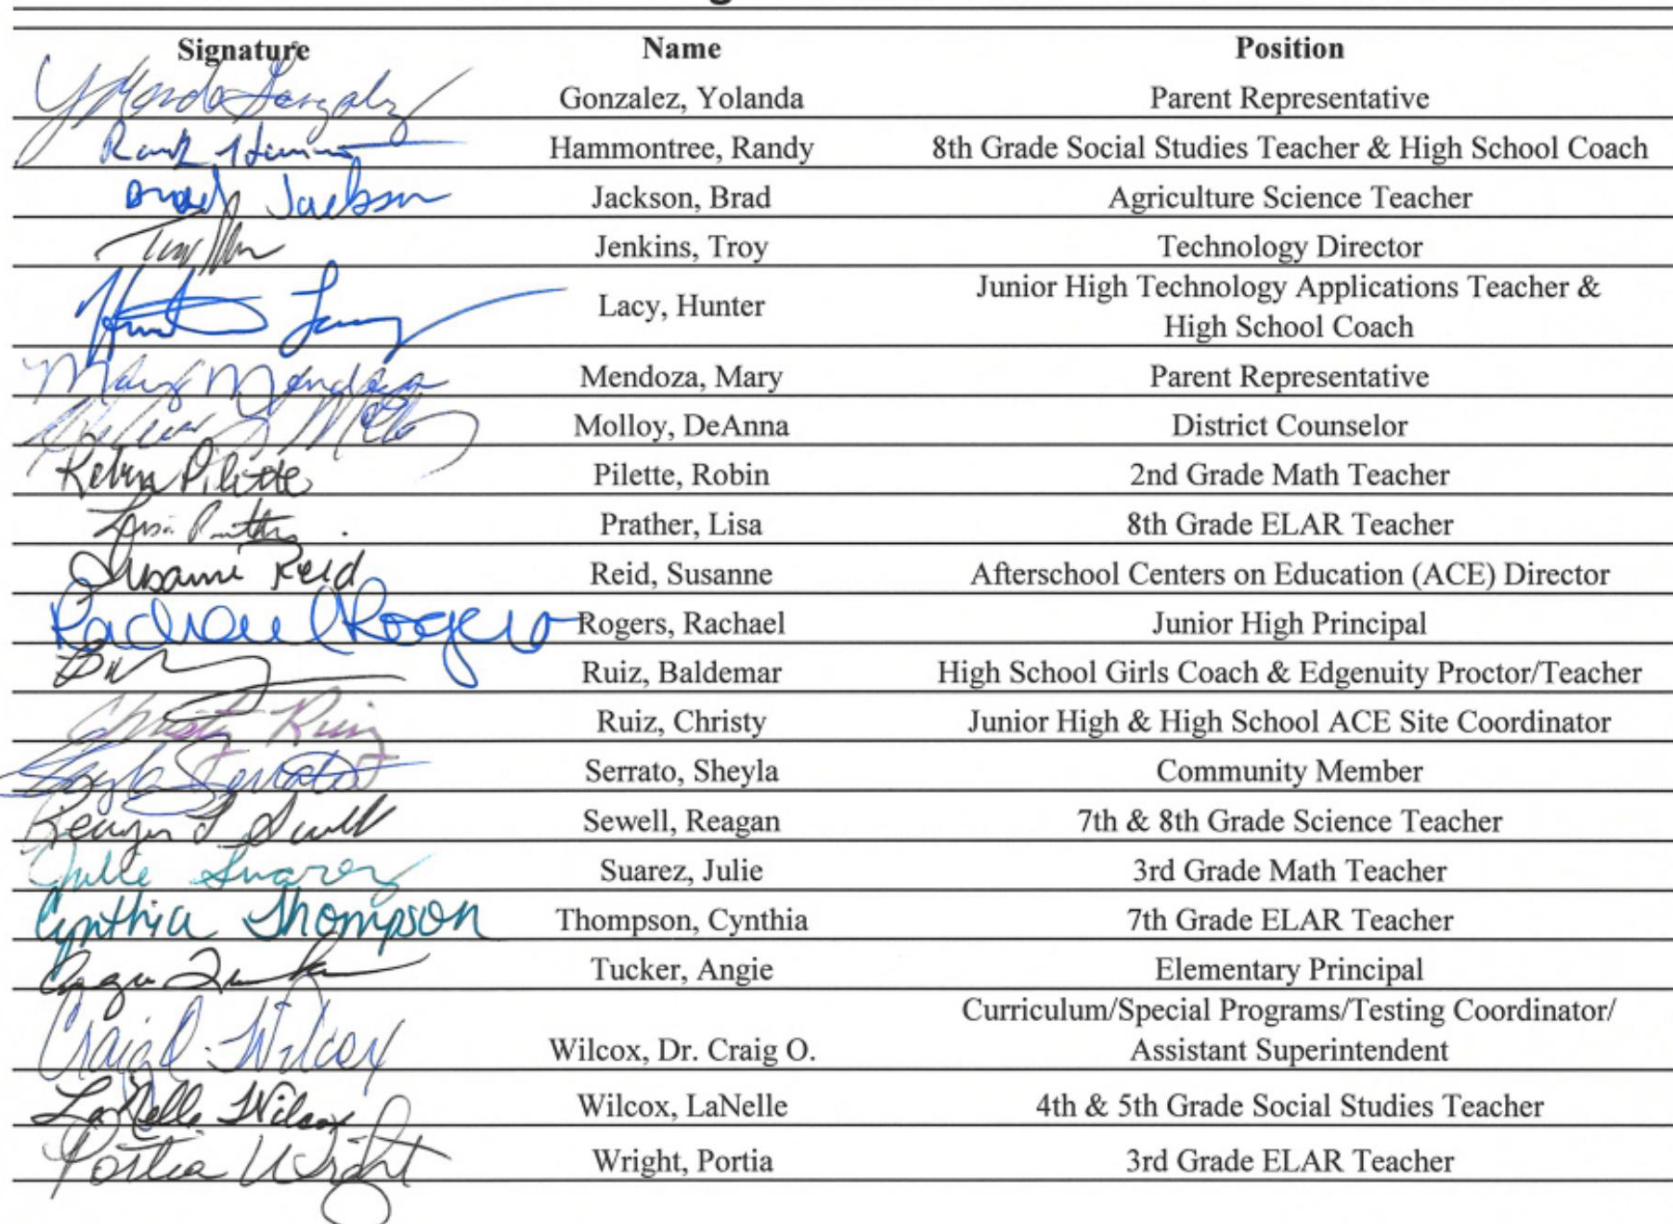 Signature Name Position
Yolanda Gonzalez Gonzalez, Yolanda Parent Representative
Hammontree, Randy 8th Grade Social Studies Teacher & High School Coach
Brad Jackson Jackson, Brad Agriculture Science Teacher
Jenkins, Troy Technology Director
Junior High Technology Applications Teacher &
Lacy, Hunter
High School Coach
Mary Mendoza Mendoza, Mary Parent Representative
Molloy, DeAnna District Counselor
Robin Pilette Pilette, Robin 2nd Grade Math Teacher
Lisa Prather, Lisa 8th Grade ELAR Teacher
Susanne Reid Reid, Susanne Afterschool Centers on Education (ACE) Director
Rachael Rogers Rogers, Rachael Junior High Principal
Ruiz, Baldemar High School Girls Coach & Edgenuity Proctor/Teacher
Christy Ruiz Ruiz, Christy Junior High & High School ACE Site Coordinator
Serrato Serrato, Sheyla Community Member
Sewell, Reagan 7th & 8th Grade Science Teacher
Julie Suarez Suarez, Julie 3rd Grade Math Teacher
Cynthia Thompson Thompson, Cynthia 7th Grade ELAR Teacher
Tucker, Angie Elementary Principal
Curriculum/Special Programs/Testing Coordinator/
Craig O. Wilcox Wilcox, Dr. Craig O. Assistant Superintendent
LaNelle Wilcox Wilcox, LaNelle 4th & 5th Grade Social Studies Teacher
Portia Wright Wright, Portia 3rd Grade ELAR Teacher